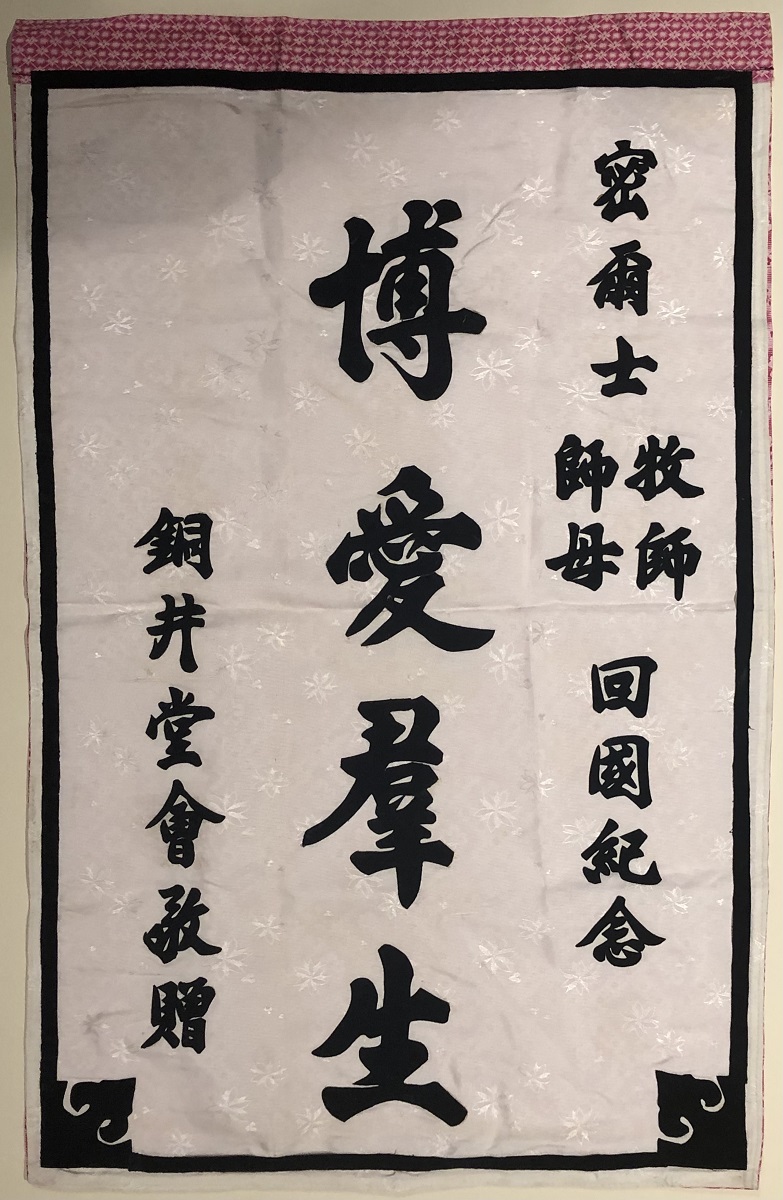 密爾士
牧師
師母
回國紀念
博愛羣生
銅井堂會敬贈